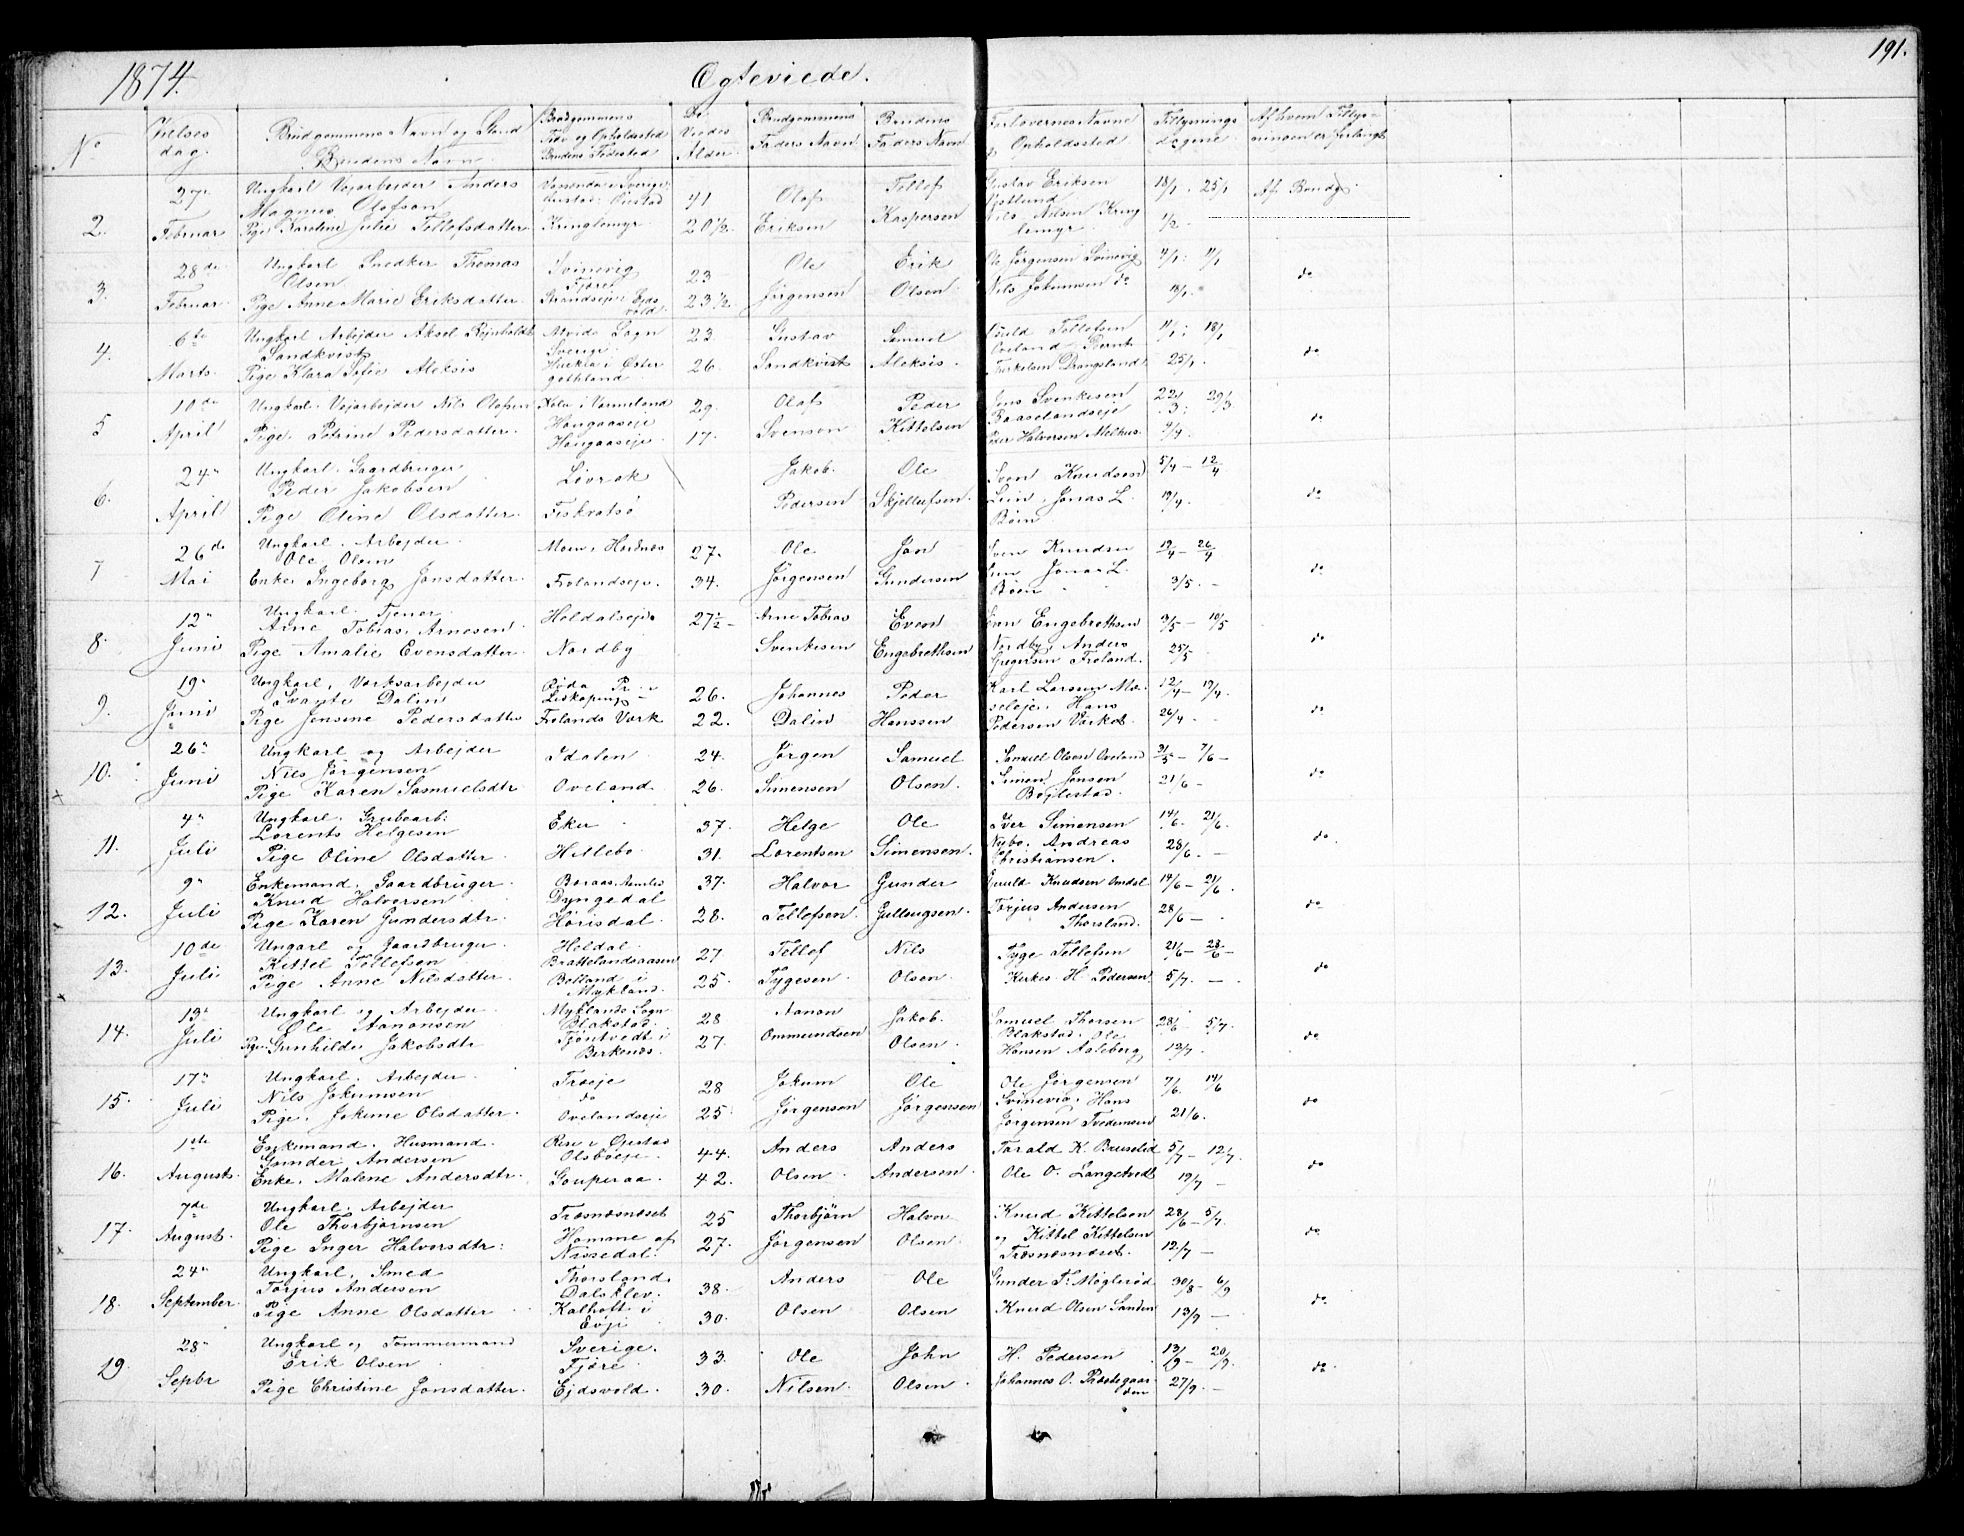 191.
1874.
Ægteviede.
No
Vielses dag.
Brudgommens Navn og Stand
Brudens Navn.
Brudgommens Føde og Opholdssted
Brudens Fødested
De Viedes Alder
Brudgommens Faders Navn
Brudens Faders Navn
Forlovernes Navne og Opholdssted
Tillysnings dagene
Af hvem Tillysningen er forlangt
2. 27de Februar
Ungkarl Vejarbejder Anders Magnus Olofson
Pige Karoline Julie Tellefsdatter
Kringlemyr
41
20 1/2
Olof Eriksen
Tellef Kaspersen
Gustav Eriksen
Nils Nilsen Kringlemyr
18/1. 25/1
1/2.
Af Brudg.
3. 28de Februar
Ungkarl Snedker Thomas Olsen
Pige Anne Marie Eriksdatter
Svinevig
23
23 1/2
Ole Jørgensen
Erik Olsen
Ole Jørgensen Svinevig
Nils Jokumsen do
do
4. 6te Marts
Ungkarl Arbejder Aksel Rejnholdt Sandkvist
Pige Klara Sofie Aleksis
Sverige
i Østergothland
23
26.
Gustav Sandkvist
Samuel Aleksis.
Tellefsen Oveland
Terkelsen Drangsland
11/1: 18/1
25/1.
do
5 10de April
Ungkarl. Vejarbejder Nils Olofsen
Pige. Petrine Pedersdatter.
i Vermeland
Haugaaseje
Haugaaseje.
29.
17.
Olof Svenson
Peder Kittelsen
Jens Svenkesen Braaelandseje
Peder Halvorsen Melhus.
22/3: 29/3
do
6. 24de April
Ungkarl. Gaardbruger Peder Jakobsen
Pige Oline Olsdatter.
Løvrak
Fiskvatsø
Jakob. Pedersen
Ole Skjellufsen.
Sven Knudsen Lien, Jonas L. Bøen
5/4 - 12/4
19/4.
do
7 26de Mai
Ungkarl. Arbejder. Ole Olsen
Enke Ingeborg Jonsdatter.
Moen i Herefoss
Frolandseje.
27.
34.
Ole Jørgensen
Jon Gundersen
Sven Knudsen Lien Jonas L. Bøen
19/4 - 26/4
3/5. -
do
8. 12te Juni
Ungkarl. Tjener. Arne Tobias Arnesen.
Pige Amalie Evensdatter.
Heldalseje
Nordby
27 1/2 -
Arne Tobias Svenkesen
Even Engebrethsen
Even Engebrethsen Nordby, Anders Gregersen Froland.
3/5 - 10/5
25/5
do
9. 19de Juni
Ungkarl, Værksarbejder Svante Dalin
Pige Jensine Pedersdatter
Frolands Værk
26.
22.
Johannes Dalin
Peder Hanssen
Karl Larssen Hans Pedersen Værket.
12/4 - 19/4
26/4. -
do
10. 26de Juni
Ungkarl og Arbejder Nils Jørgensen
Pige Karen Samuelsdtr
Idalen
Oveland.
24.
26.
Jørgen Simensen
Samuel Olsen.
Samuel Olsen Oveland
Simen Jensen Bøjlestad.
31/5 - 7/6 -
21/6 -
do
11. 4de Juli
Ungkarl. Grubearb: Lorents Helgesen
Pige Oline Olsdatter.
Eker
Hillebo.
37.
31.
Helge Lorentsen
Ole Simensen.
Iver Simensen Nybo, Andreas Christiansen.
14/6. 21/6.
28/6. -
do.
12. 9de Juli
Enkemand. Gaardbruger. Knud Halvorsen
Pige Karen Gundersdtr.
Boraas, Aamlid
Dyngedal
Hørisdal.
37.
28.
Halvor Tellefsen.
Gunder Gullaugsen.
Knudsen Omdal
Torjus Andersen Thorsland.
14/6 - 21/6.
28/6 -
do
13. 10de Juli
Ungkarl og Gaardbruger. Kittel Tellefsen
Pige Anne Nilsdatter.
Heldal.
Brattelandsaasen
i Mykland.
27
25.
Tellef Tygesen
Nils Olsen.
Tyge Tellefsen
Kirkes. H. Pedersen.
21/6 - 28/6 -
5/7. -
do
14. 13de Juli
Ungkarl og Arbejder Ole Aanonsen
Pige. Gunhilde Jakobsdtr
Myklands Sogn
Blakstad.
Tjøntvedt i Birkenes.
28
27.
Aanon Ommundsen
Jakob. Olsen
Samuel Thorsen Blakstad. Ole Hansen Aaleberg,
28/6 - 5/7.
12/7.
do
15. 17de Juli
Ungkarl. Arbejder. Nils Jokumsen
Pige. Jokime Olsdatter.
Træeje
do
Ovelandseje
28
25
Jokum Jørgensen
Ole Jørgensen
Ole Jørgensen Svinevig, Hans Jørgensen Tvedemoen
7/6. 14/6
21/6.
do
16. 1ste August.
Enkemand. Husmand. Gunder Andersen
Enke. Malene Andersdtr.
Rise i Øiestad
Olsbøeje.
Gauperaa.
44.
42.
Anders Olsen
Anders Andersen.
Tarald K. Bruselid
Ole O. Langetvedt
5/7 - 12/7.
19/7 -
do
17. 7de August.
Ungkarl. Arbejder Ole Thorbjørnsen
Pige Inger Halvorsdtr:
Træsnæsnæset
Homme af Nissedal.
25
27.
Thorbjørn Jørgensen
Halvor Olsen.
Knud Kittelsen og Kittel Kittelsen Træsnæsnæset.
28/6 - 5/7.
12/7 -
do
18. 24de September.
Ungkarl, Smed Torjus Andersen
Pige Anne Olsdatter
Thorsland.
Dalsklev.
i Evje
38.
30.
Anders Olsen
Ole Olsen
Gunder T. Møglerød
Knud Olsen Sanden
30/8 - 6/9
13/9 -
do
19 28de Septbr
Ungkarl og Tømmermand Erik Olsen
Pige Christine Jonsdatter.
Sverige.
Fjære.
Ejdsvold.
33.
30.
Ole Nilsen.
John Olsen
H. Pedersen
Johannes O. Præstegaarden
13/9 - 20/9.
27/9. -
do.